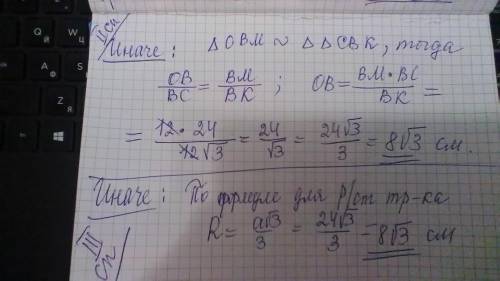 II сп
Иначе: △OBM ~ △△CBK, тогда
OB/BC = BM/BK ; OB = BM·BC/BK =
= 12·24/12√3 = 24/√3 = 24√3/3 = 8√3 см.
III сп
Иначе: По формуле для Р/ст тр-ка
R = a√3/3 = 24√3/3 = 8√3 см